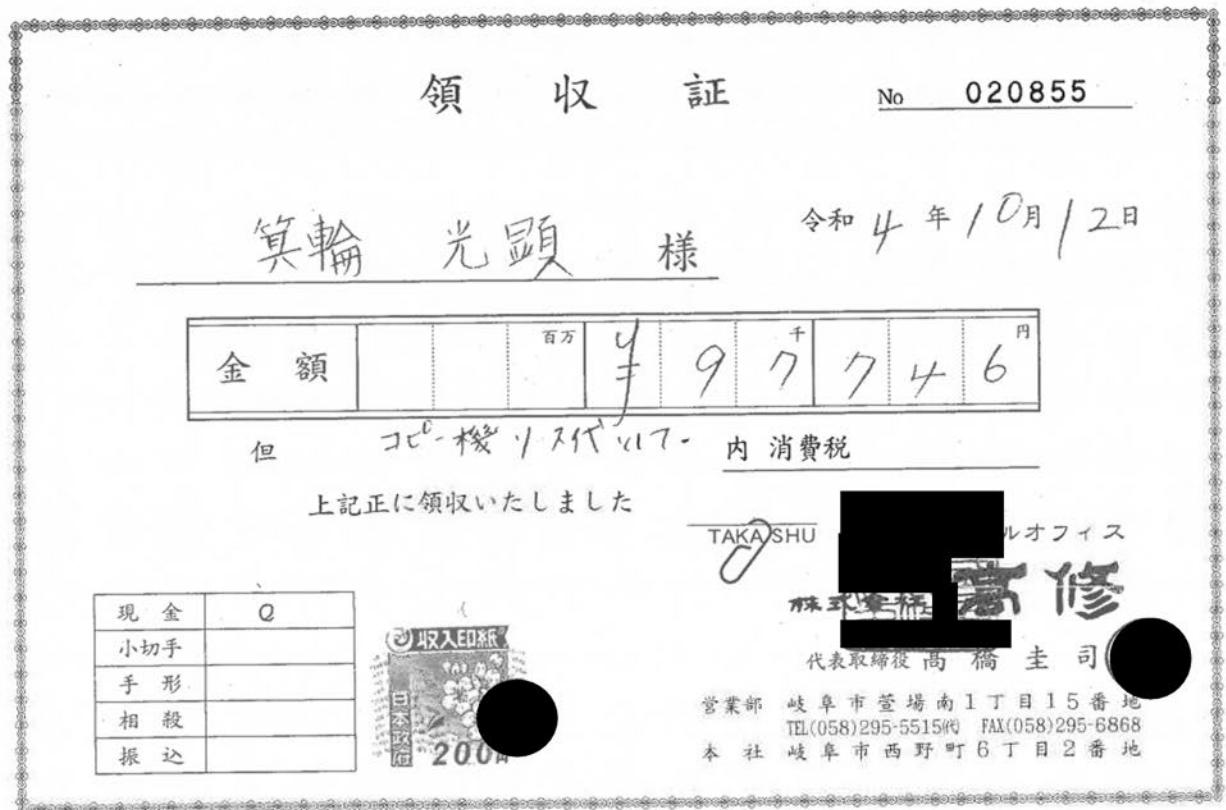 領収証
No 020855
令和 4 年 10月 12日
箕輪 光顕 様
金額 百万 千 円
¥97746
但 コピー機リース代として
内 消費税
上記正に領収いたしました
TAKASHU ルオフィス
株式会社 高修
代表取締役 髙橋圭司
営業部 岐阜市萱場南1丁目15番地
TEL(058)295-5515(代) FAX(058)295-6868
本社 岐阜市西野町6丁目2番地
現金
小切手
手形
相殺
振込
収入印紙
日本政府
200円